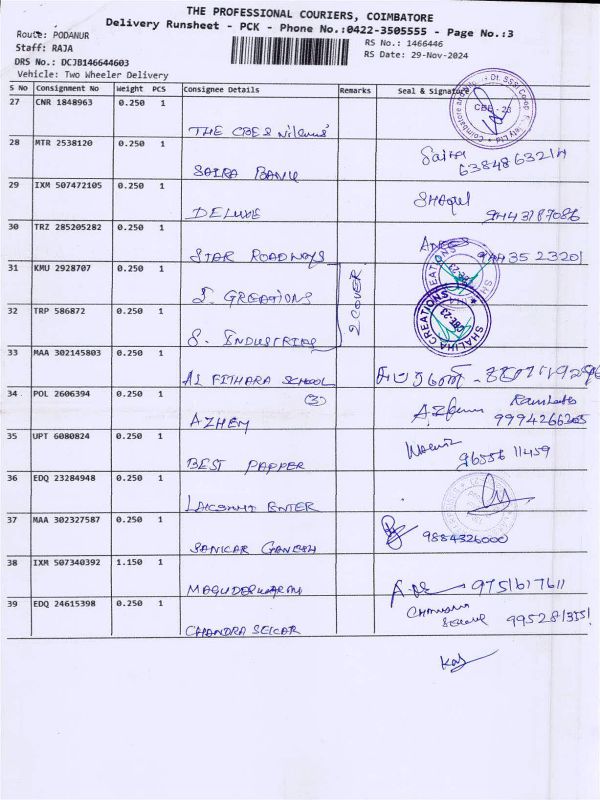 THE PROFESSIONAL COURIERS, COIMBATORE
Delivery Runsheet - PCK - Phone No.:0422-3505555 - Page No.:3
Route: PODANUR
Staff: RAJA
RS No.: 1466446
RS Date: 29-Nov-2024
DRS No.: DCJB146644603
Vehicle: Two Wheeler Delivery
S No Consignment No Weight PCS Consignee Details Remarks Seal & Signature
27 CNR 1848963 0.250 1
THE CBE
CBE - 23
28 MTR 2538120 0.250 1
SAIRA BANU
Saira
29 IXM 507472105 0.250 1
DELUXE
9443187086
30 TRZ 285205282 0.250 1
STAR ROADWAYS
94435 23201
31 KMU 2928707 0.250 1
S. CREATIONS
2 COVER
32 TRP 586872 0.250 1
S. INDUSTRIES
SHALIHA CREATIONS
CBE-23
33 MAA 302145803 0.250 1
AL FITHARA SCHOOL
(3)
34 POL 2606394 0.250 1
AZHEM
9994266205
35 UPT 6080824 0.250 1
BEST PAPPER
96556 11459
36 EDQ 23284948 0.250 1
LAKSHMI ENTER
37 MAA 302327587 0.250 1
SANKAR GANESH
9884326000
38 IXM 507340392 1.150 1
9751617611
39 EDQ 24615398 0.250 1
CHANDRA SEKAR
9952813551